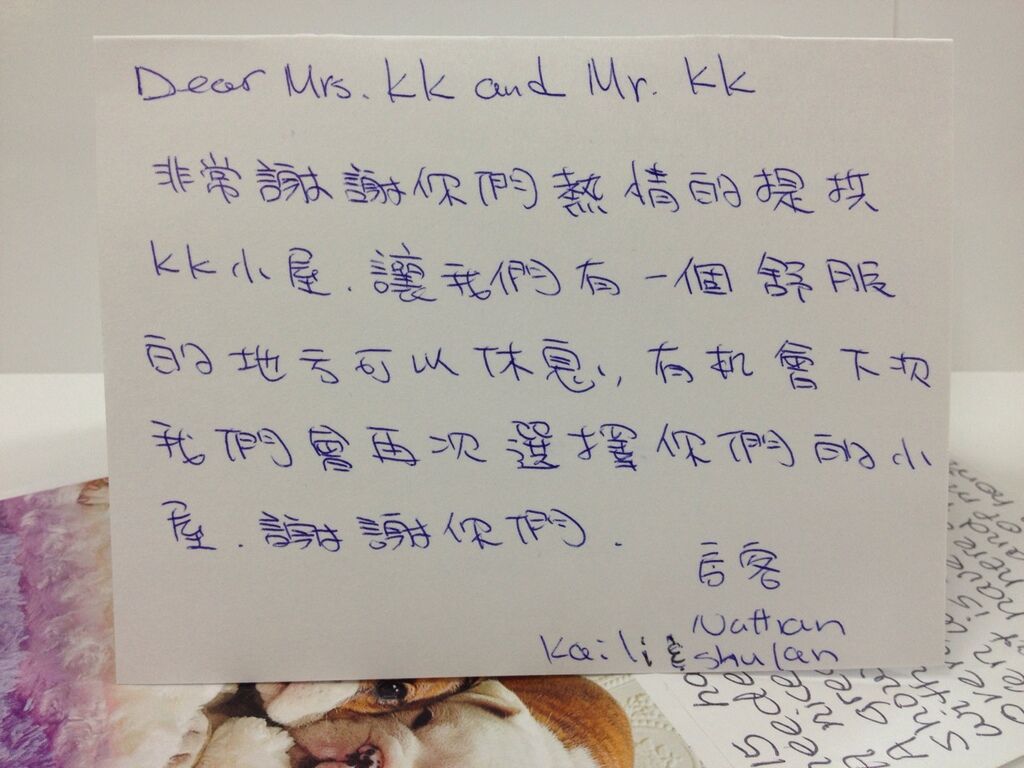 Dear Mrs. KK and Mr. KK
非常謝謝你們熱情的提拱
KK小屋.讓我們有一個舒服
的地方可以休息,有机會下次
我們會再次選擇你們的小
屋.謝謝你們.
Nathan
Kaili & shulan